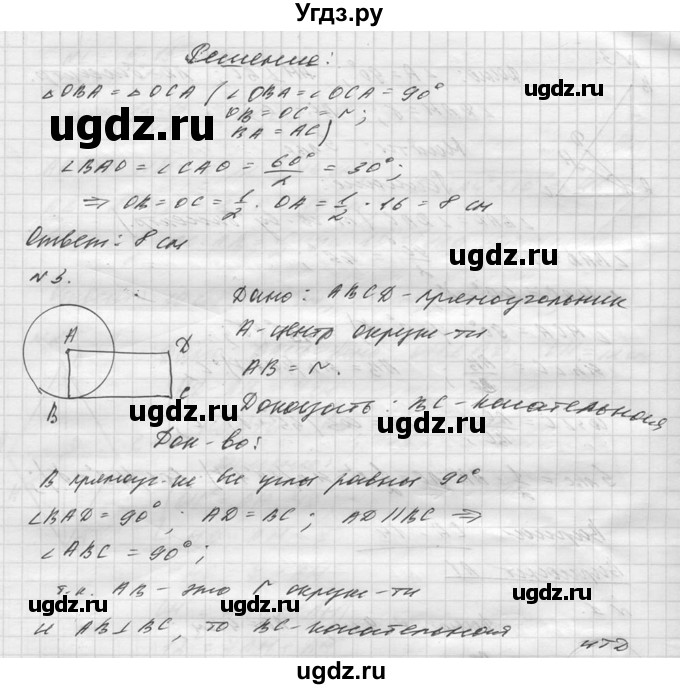 Угдз.ру
Решение:
△OBA = △OCA (∠OBA = ∠OCA = 90°
OB = OC = r;
BA = AC)
∠BAO = ∠CAO = 60°/2 = 30°;
⇒ OB = OC = 1/2 · OA = 1/2 · 16 = 8 см
Ответ: 8 см
№3.
Дано: ABCD - прямоугольник
A - центр окруж-ти
AB = r.
Доказать: BC - касательная
A
D
B
C
Док-во:
В прямоуг-ке все углы равны 90°
∠BAD = 90°; AD = BC; AD ∥ BC ⇒
∠ABC = 90°;
т.к. AB - это r окруж-ти
и AB ⊥ BC, то BC - касательная
чтд
ugdz.ru
ugdz.ru
ugdz.ru
ugdz.ru
ugdz.ru
ugdz.ru
ugdz.ru
ugdz.ru
ugdz.ru
ugdz.ru
ugdz.ru